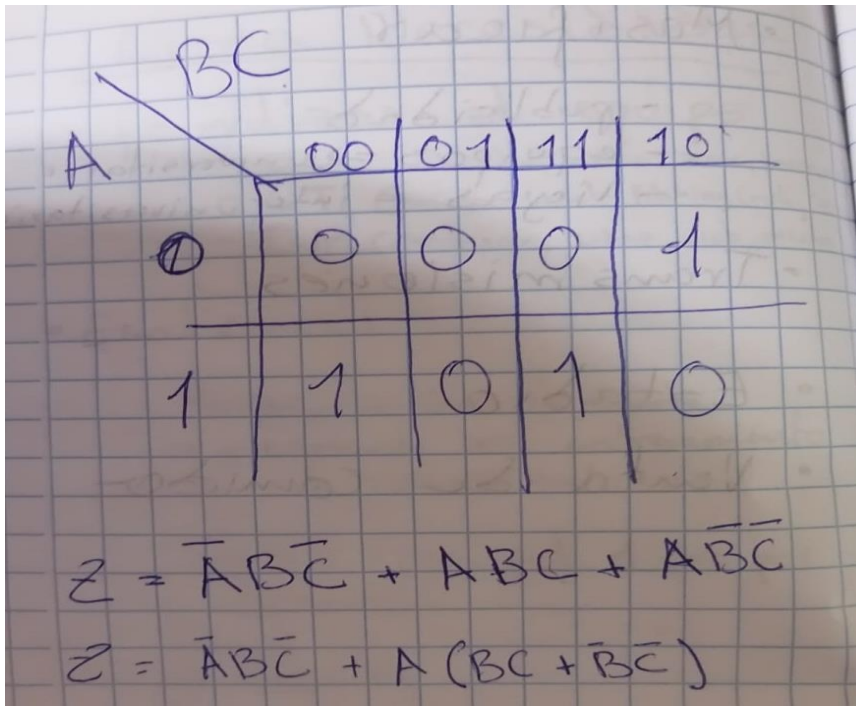 BC
A 00 01 11 10
0 0 0 0 1
1 1 0 1 0
Z = A̅BC̅ + ABC + AB̅C̅
Z = A̅BC̅ + A(BC + B̅C̅)